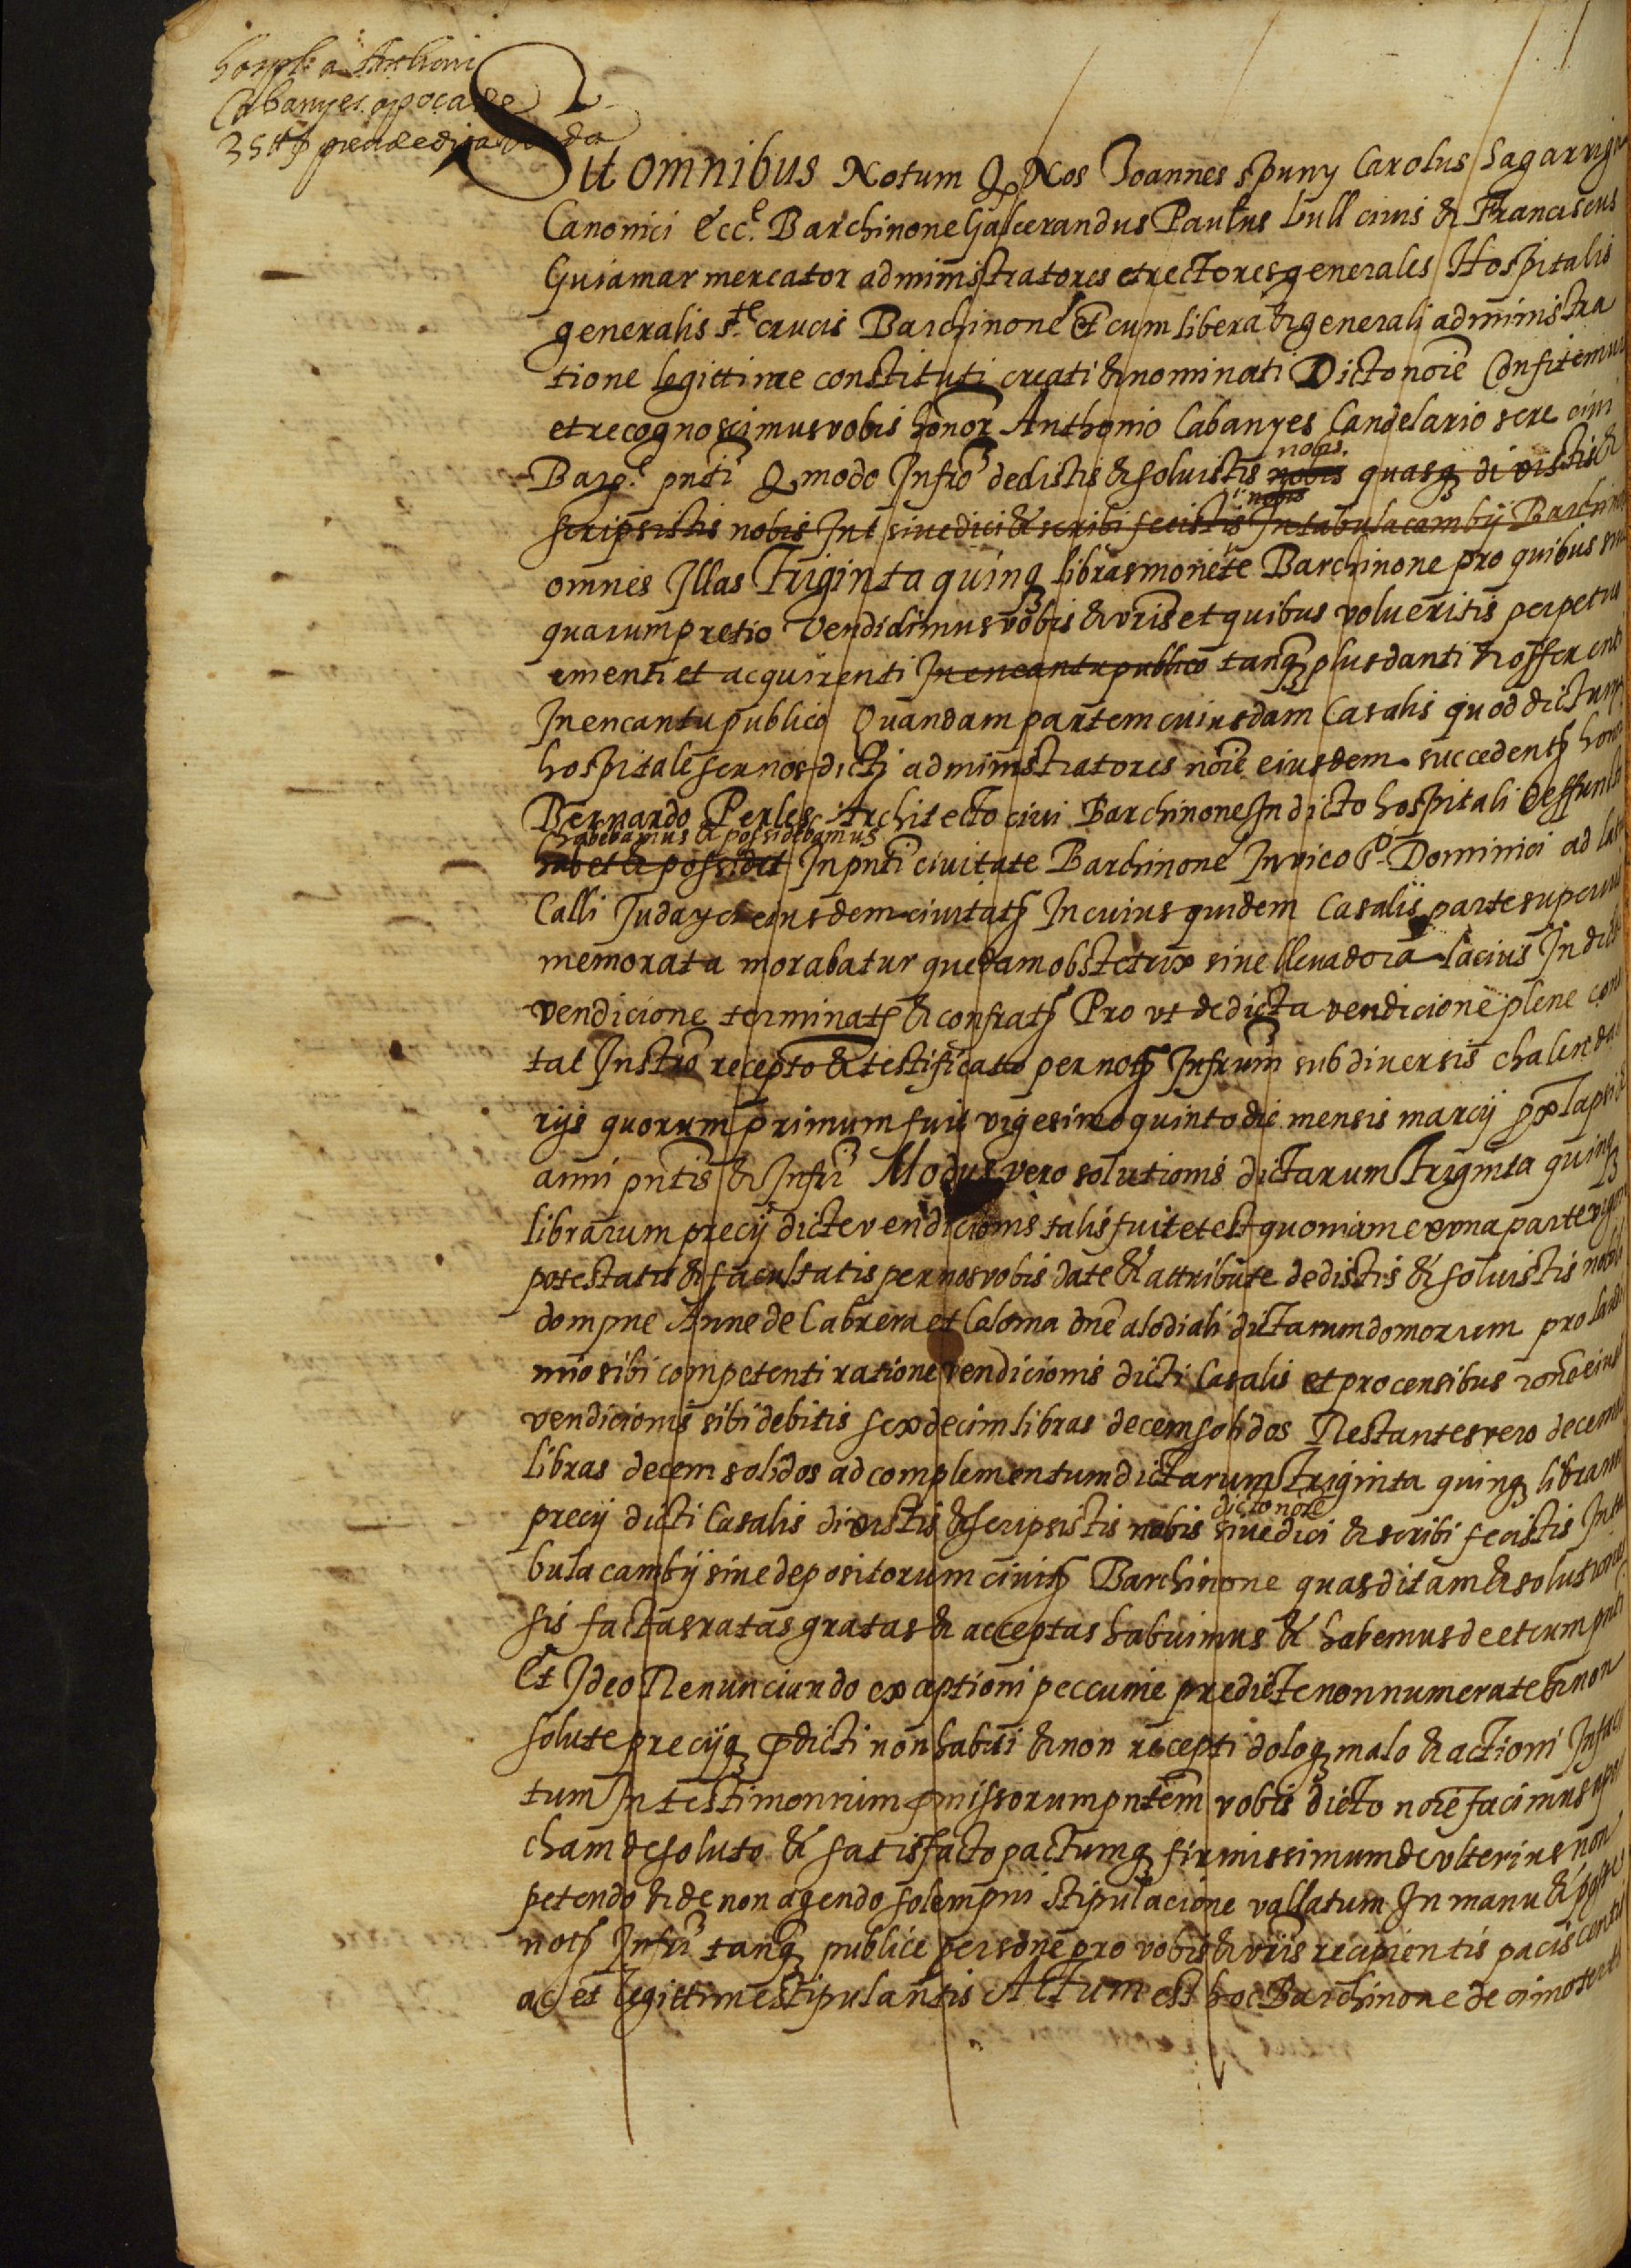 hospl: a Anthoni
Cabanyes apoca de
35 ₶
Sit omnibus Notum Q Nos Joannes spuny Carolus Sagarriga
Canonici Ecc.e Barchinone Galcerandus Paulus Lull civis & Franciscus
Guiamar mercator administratores et rectores generales Hospitalis
generalis s.te crucis Barchinone Et cum libera & generali administra
tione legittime constituti creati & nominati Dicto noie Confitemur
et recognoscimus vobis honor Anthonio Cabanyes Candelario sere civi
Bar.e pnti Q modo Infro dedistis & soluistis nobis nobis quasq dixistis &
scripsistis nobis Int siue dici & scribi fecistis nobis In tabula cambij Barchinone
omnes Illas Triginta quinq libras monete Barchinone pro quibus siue
quarum pretio Vendidimus vobis & vris et quibus volueritis perpetuo
ementi et acquirenti In encantu publico tanq plus danti & offerenti
In encantu publico Quandam partem cuiusdam Casalis quod dictum
hospitale seu nos dicti administratores noie eiusdem succedents hono
Bernardo Perles Architecto ciui Barchinone In dicto hospitali deffuncto
habebamus & possidebamus
habet & possidet In pnti ciuitate Barchinone In vico S.ti Dominici ad latus
Calli Judayci eiusdem ciuitats In cuius quidem Casalis parte superius
memorata morabatur quedam obstetrix siue lleuadora lacius In dicta
vendicione terminats & confrats Pro vt de dicta vendicione plene cons
tat Instro recepto & testificato per nots Infrum sub diuersis chalenda
rijs quorum primum fuit vigesimo quinto die mensis marcij pxlapsi
anni pntis & Infri Modus vero solutionis dictarum Triginta quinq
librarum precij dicte vendicionis talis fuit et est quoniam ex vna parte vigore
potestatis & facultatis per nos vobis date & attribute dedistis & soluistis nobili
dompne Anne de Cabrera et Caloma dne alodiali dictarum domorum pro laudi
mio sibi competenti ratione vendicionis dicti Casalis et pro censibus rone eiusdem
vendicionis sibi debitis sexdecim libras decem solidos Restantes vero decem
libras decem solidos ad complementum dictarum Triginta quinq librarum
precij dicti Casalis dixistis & scripsistis nobis dicto noie siue dici & scribi fecistis In ta
bula cambij siue depositorum ciuits Barchinone quas ditam & solutiones
sis factas ratas gratas & acceptas habuimus & habemus de et cum pnti
Et Ideo Renunciando exceptioni peccunie predicte non numerate & non
solute precijq pdicti non habiti & non recepti doloq malo & actioni In fac
tum In testimonium pmissorum pntem vobis dicto noie facimus apo
cham de soluto & satisfacto pactumq firmissimum de vlterius non
petendo & de non agendo solempni stipulacione vallatum In manu & posse
nots Infri tanq publice persone pro vobis & vris recipientis paciscentis
ac et legittime stipulantis Actum est hoc Barchinone decimo